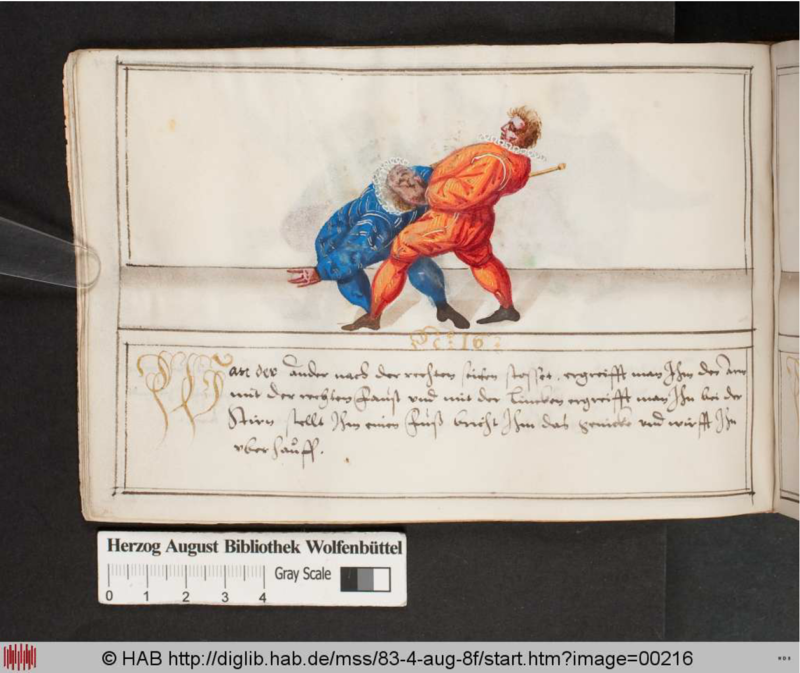 N: 16:
Wan der Ander nach der rechten seiten stosset, ergreifft man Ihm den Arm
mit der rechten Faust und mit der Lincken ergreifft man Ihn bei der
Stirn stellt Ihm einen Fuß bricht Ihm das genicke und wirfft Ihn
uber hauff.
Herzog August Bibliothek Wolfenbüttel
Gray Scale
0 1 2 3 4
© HAB http://diglib.hab.de/mss/83-4-aug-8f/start.htm?image=00216